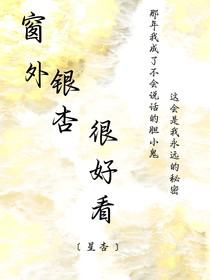 窗外
银杏
很好看
那年我成了不会说话的胆小鬼
这会是我永远的秘密
〔星杏〕